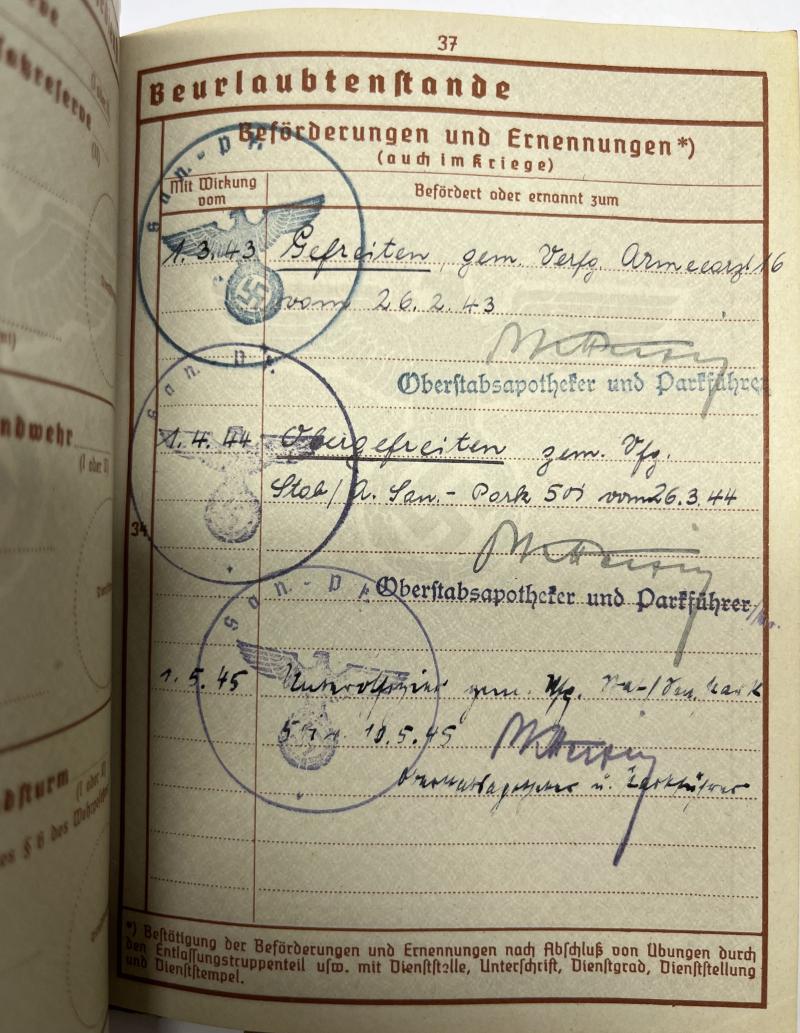 37
Beurlaubtenstande
Beförderungen und Ernennungen*)
(auch im Kriege)
Mit Wirkung vom
Befördert oder ernannt zum
San.-P
1.3.43 Gefreiten, gem. Verfg. Armeearzt 16
vom 26.2.43
Oberstabsapotheker und Parkführer
San.-P
1.4.44 Obergefreiten gem. Vfg.
Stab/A. San.-Park 501 vom 26.3.44
34
Oberstabsapotheker und Parkführer
San.-P
1.5.45 Unteroffizier gem. Vfg. San. Park
10.5.45
Oberstabsapotheker u. Parkführer
*) Bestätigung der Beförderungen und Ernennungen nach Abschluß von Übungen durch
den Entlassungstruppenteil usw. mit Dienststelle, Unterschrift, Dienstgrad, Dienststellung
und Dienststempel.
ndwehr
(I oder II)
dsturm
(I oder II)
es § 6 des Wehrpa